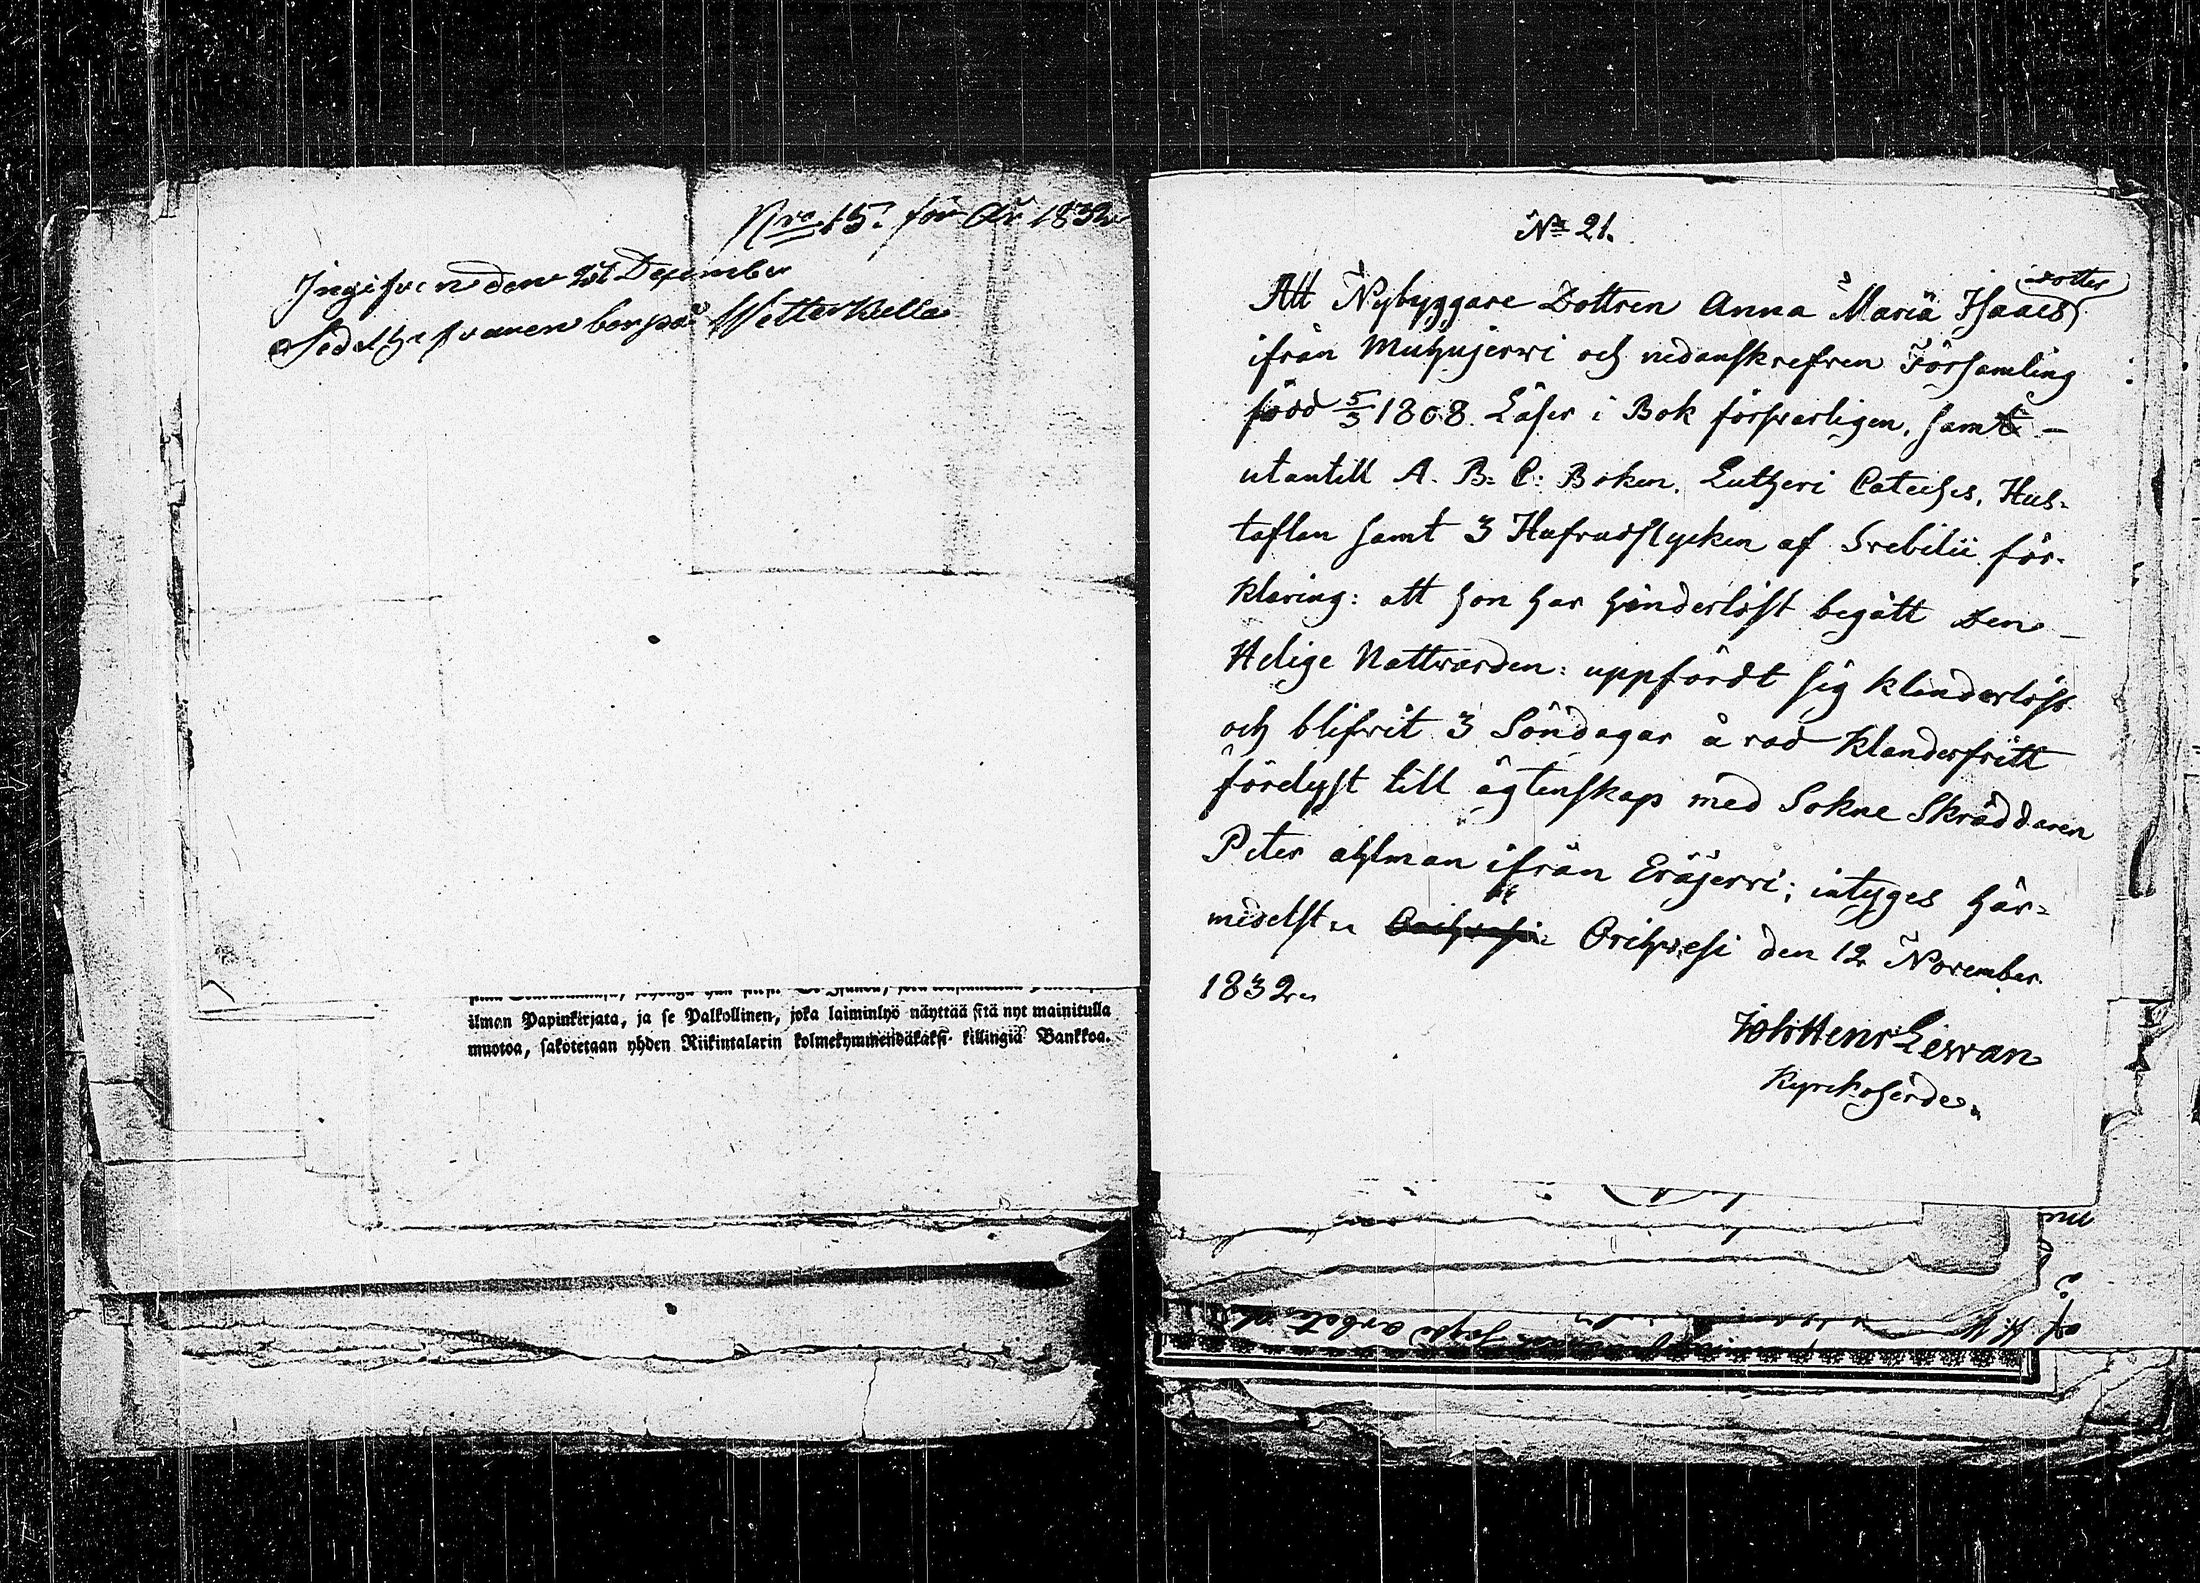 Nro 15. för År 1832
Ingifven den 21 December
Sedelhafvaren bor på Wetterkulla
ilman Papinkirjata, ja se Palkollinen, joka laiminlyö näyttää sitä nyt mainitulla
muotoa, sakotetaan yhden Riikintalarin kolmekymmendäkaksi killingiä Bankkoa.
No 21.
Att Nybyggare Dottren Anna Maria Isaacs dotter
ifrån Muhujerwi och nedanskrefven Församling
född 5/3 1808. Läser i Bok försvarligen, samt –
utantill A. B. C. Boken, Lutheri Cateches, Hus-
taflan samt 3 Hufvudstycken af Svebilii för-
klaring: att hon har hinderlöst begått Den
Helige Nattvarden: uppfördt sig klanderlöst
och blifvit 3 Söndagar å rad klanderfritt
förelyst till ägtenskap med Sokne Skräddaren
Peter Ahlman ifrån Eräjerwi; intyges här-
medelst Orihwesi den 12 November
1832
Joh Henr Lewan
Kyrckoherde.